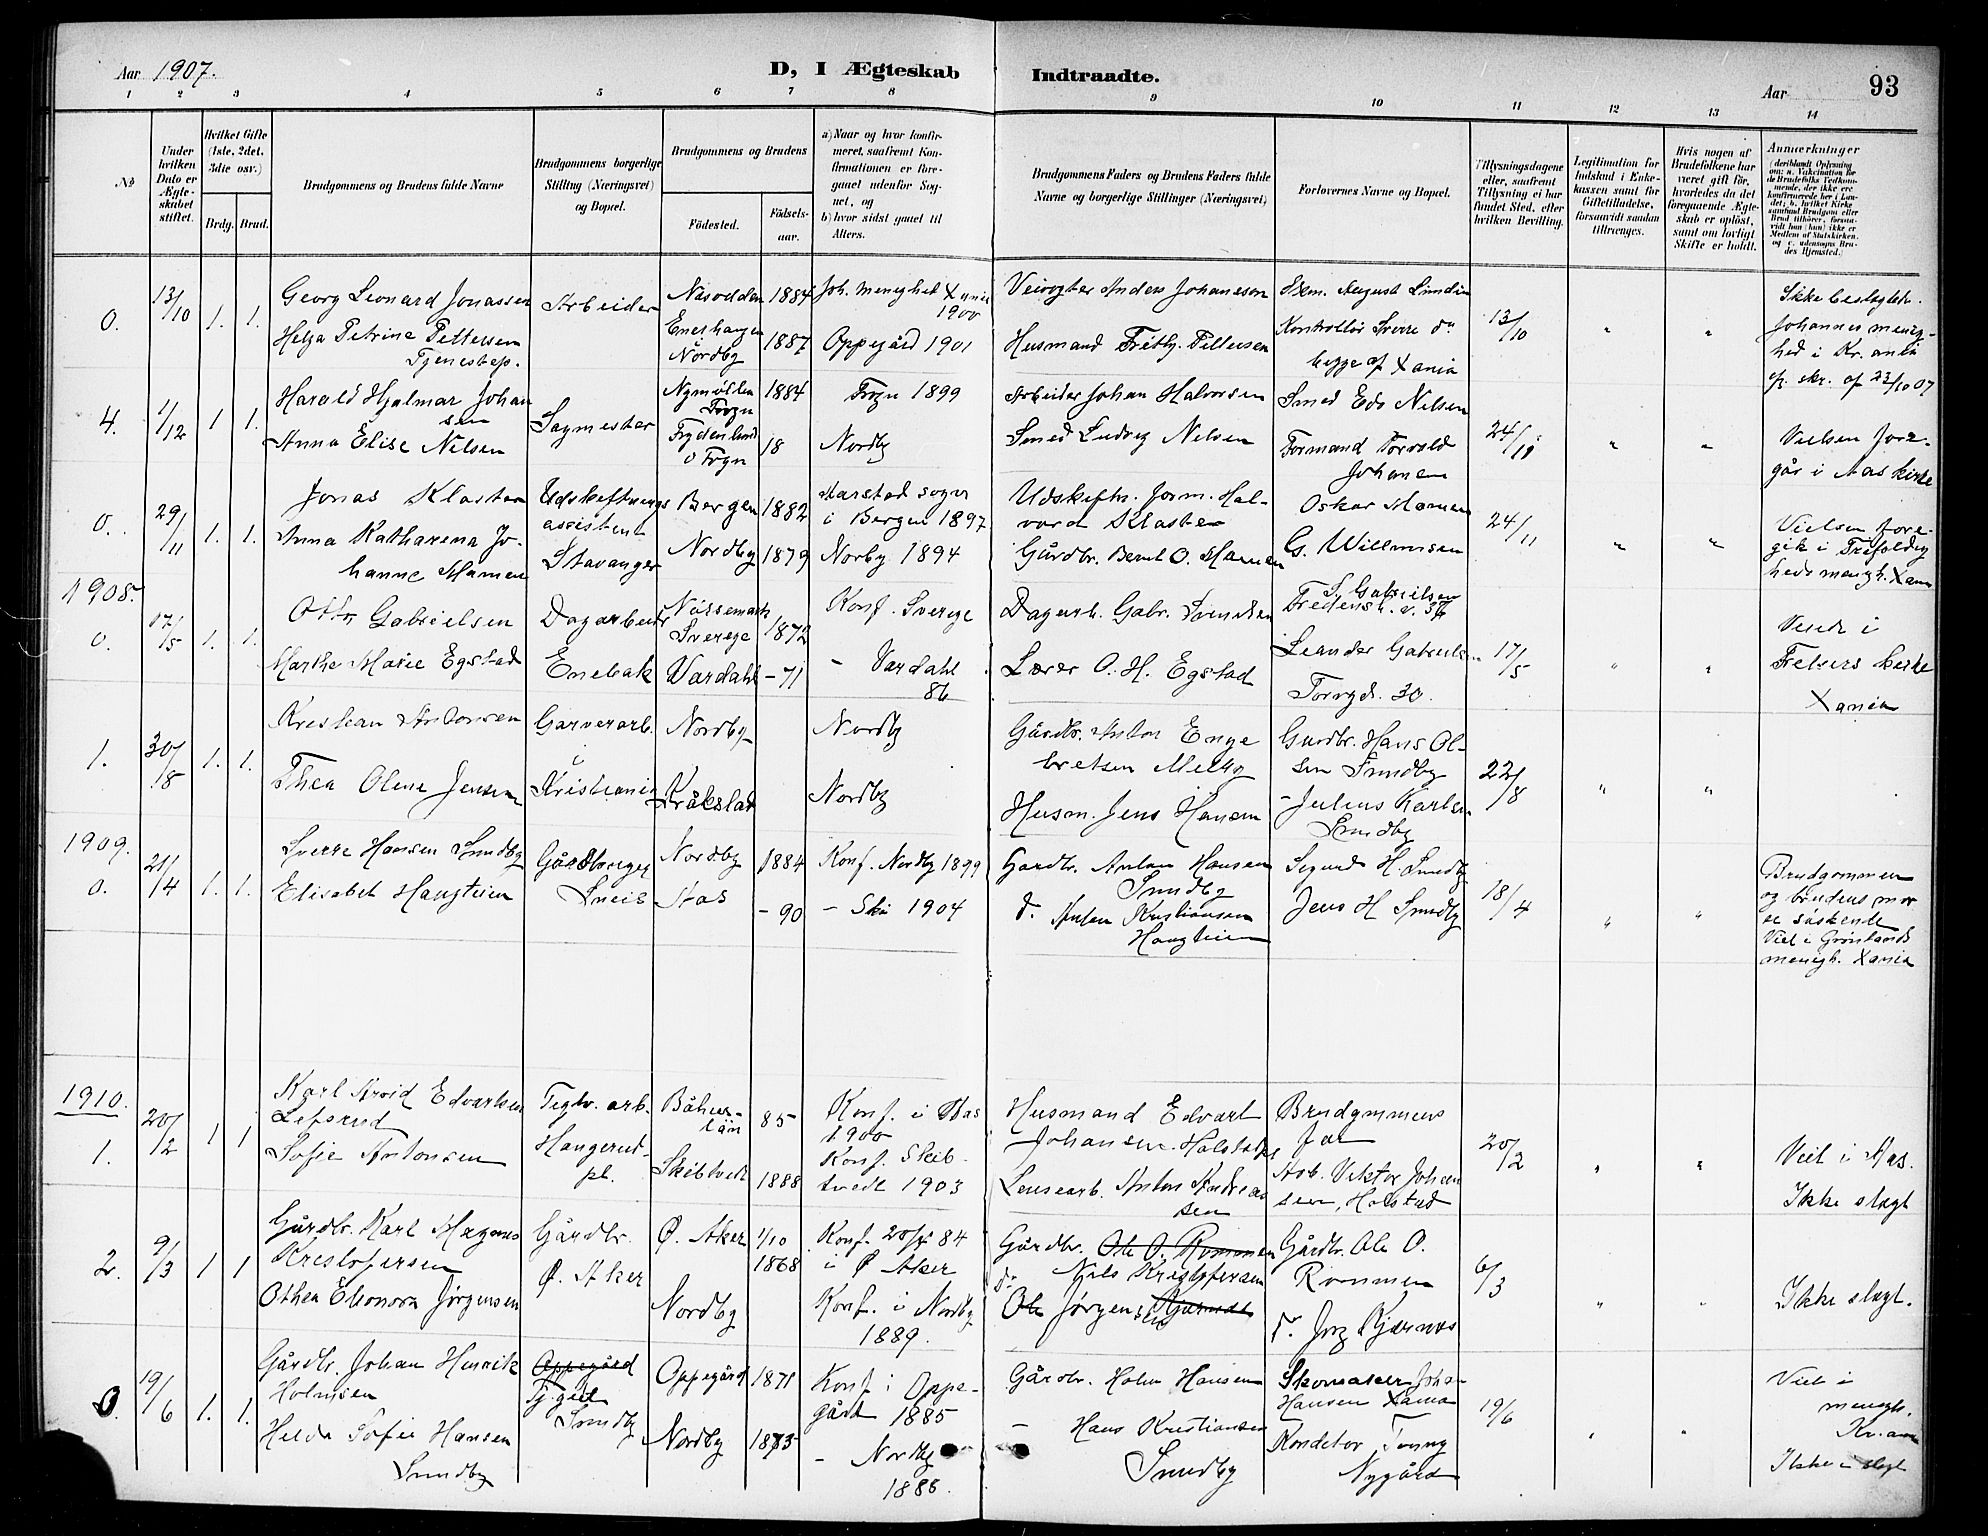 Aar 1907.
D, I Ægteskab
Indtraadte.
Aar
93
1 2 3 4 5 6 7 8 9 10 11 12 13 14
No
Under hvilken Dato er Ægteskabet stiftet.
Hvilket Gifte (1ste, 2det, 3die osv.)
Brdg. Brud.
Brudgommens og Brudens fulde Navne
Brudgommens borgerlige Stilling (Næringsvei) og Bopæl.
Brudgommens og Brudens
Fødested.
Fødselsaar.
a) Naar og hvor konfirmeret, saafremt Konfirmationen er foregaaet udenfor Sognet, og
b) hvor sidst gaaet til Alters.
Brudgommens Faders og Brudens Faders fulde Navne og borgerlige Stillinger (Næringsvei)
Forlovernes Navne og Bopæl.
Tillysningsdagene eller, saafremt Tillysning ei har fundet Sted, efter hvilken Bevilling.
Legitimation for Indskud i Enkekassen samt for Giftetilladelse, forsaavidt saadan tiltrænges.
Hvis nogen af Brudefolkene har været gift før, hvorledes da det foregaaende Ægteskab er opløst, samt om lovligt Skifte er holdt.
Anmærkninger
(deriblandt Oplysning om: a. Vakcination for de Brudefolks Vedkommende, der ikke ere konfirmerede her i Landet; b. hvilket Kirkesamfund Brudgom eller Brud tilhører, forsaavidt han (hun) ikke er Medlem af Statskirken, og c. udensogns Brudes Hjemsted.)
0. 13/10 1. 1.
Georg Leonard Jonassen
Helga Petrine Pettersen
Tjenestep.
Arbeider
Næsodden 1884
Nordby 1887
Joh. menighet Xania
1900
Oppegård 1901
Veivogter Anders Johanesson
Husmand Frithj. Pettersen
Exm. August Lundin
Kontrollør Sverre do
begge af Xania
13/10 " "
Ikke beslægtede.
Johannes menighed i Kr.ania
cfr. skr. af 23/10 07
4. 1/12 1 1.
Harald Hjalmar Johansen
Anna Elise Nilsen
Sagmester
Frogn 1884
Frydenlund
i Frogn 18
Frogn 1899
Nordby
Arbeider Johan Halvorsen
Smed Ludvig Nelsen
Smed Edv Nilsen
Formand Torvald
Johansen
24/11 " "
Vielsen foregår i Aas kirke
0. 29/11 1. 1.
Jonas Kloster
Anna Katharena Johanne Mamen
Udskiftningsassistent
Stavanger
Bergen 1882
Nordby 1879
i Bergen 1897
Norby 1894
Udskiftn. form. Halvard Kloster
Gårdbr. Bernt O. Mamen
Oskar Mamen
G. Willumsen
24/11 " "
Vielsen foregik i Trefoldighedsmenigh. Xania
1908.
0. 17/5 1. 1.
Otto Gabrielsen
Marthe Marie Egstad
Dagarbeider
Enebak
Nössemark
Sverege 1872
Værdahl -71
Konf. Sverege
- Værdahl
86
Dagarb. Gabr. Svendsen
Lærer O. H. Egstad
S. Gabrielsen
Fredensb. v. 36
Leander Gabrielsen
Torvgd. 30.
17/5 " "
Viede i
Frelsers kirke
Xania
1. 30/8 1. 1.
Kristian Antonsen
Thea Oline Jensen
Garverarb.
i
Kristiania
Nordby
Kråkstad
Nordby
Nordby
Gårdbr. Anton Engebretsen Melby
Husm. Jens Hansen
Gardbr. Hans Olsen Sundby
Julius Karlsen
Sundby
22/8 " "
1909.
0. 21/4 1. 1.
Sverre Hansen Sundby
Elisabet Haugteien
Gårdbruger
Nordby 1884
Aas -90
Konf. Nordby 1899
- Ski 1904
Gardbr. Anton Hansen
Sundby
do Anton Kristiansen
Haugteien
Sigurd H. Sundby
Jens H Sundby
18/4 " "
Brudgommen
og brudens mor
er søskende
Viet i Grønlands
menigh. Xania
1910.
1. 20/2 1 1
Karl Arvid Edvartsen
Lefsrud
Sofie Antonsen
Teglv. arb.
Haugerudpl.
Båhuslän 85
Skibtvedt 1888
Konf. i Aas
1900
Konf. Skibtvedt 1903
Husmand Edvart
Johansen Holstadpl
Lensearb. Anton Andreassen
Brudgommens
far
Arb. Viktor Johansen, Holstad
20/2 " "
Viet i Aas.
Ikke slægt
2. 9/3 1 1
Gårdbr. Karl Magnus
Kristofersen
Othea Eleonora Jørgensen
Gårdbr.
Ø. Aker
Ø. Aker 1/10
1868
Nordby
Konf. 20/4 84
i Ø Aker
Konf. i Nordby
1889.
Gårdbr. Ole O. Rommen
Nils Kristofersen
do Ole Jørgensen Kjærnes
Gårdbr. Ole O.
Rommen
do. Jörg Kjærnes
6/3 " "
Ikke slægt.
0. 19/6 1. 1.
Gårdbr. Johan Henrik
Holmsen
Helda Sofie Hansen
Sundby
Oppegård
Sundby
Oppegård 1871
Nordby 1873
Konf i Oppegård 1885
- Nordby
1888.
Gårdbr. Holm Hansen
- Hans Kristiansen
Sundby
Skomaker Johan
Hansen Xania
Konditor Tonny
Nygård
19/6 " "
Viet i
menigh.
Kr.ania
Ikke i slægt